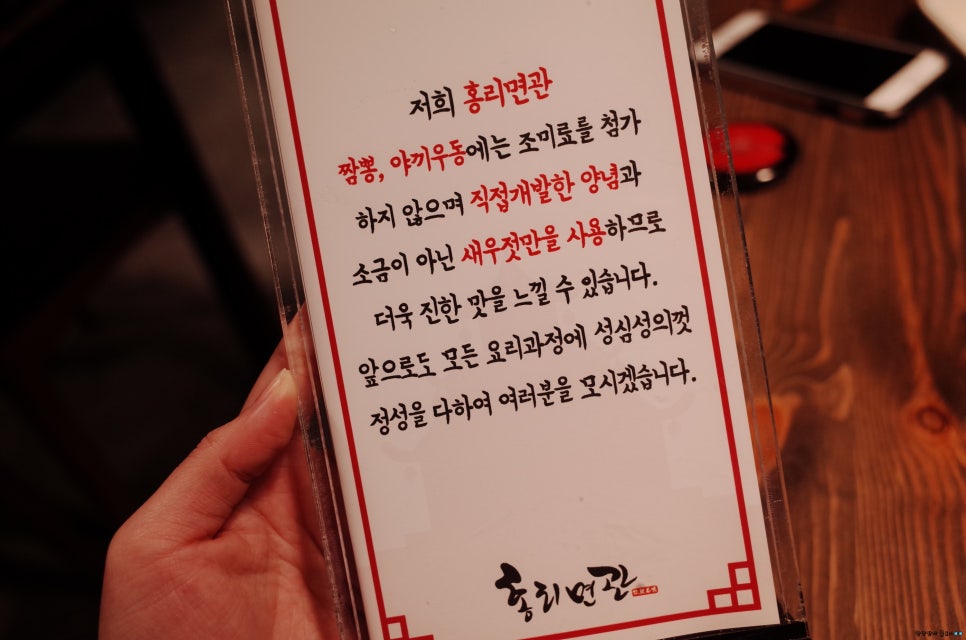 저희 홍리면관
짬뽕, 야끼우동에는 조미료를 첨가
하지 않으며 직접개발한 양념과
소금이 아닌 새우젓만을 사용하므로
더욱 진한 맛을 느낄 수 있습니다.
앞으로도 모든 요리과정에 성심성의껏
정성을 다하여 여러분을 모시겠습니다.
홍리면관